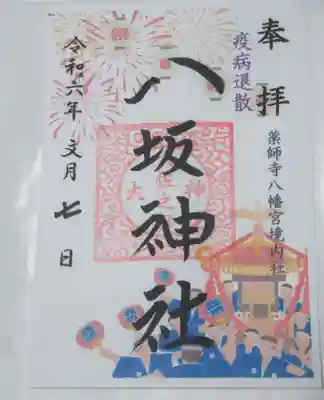 奉拝
疫病退散
薬師寺八幡宮境内社
八坂神社
令和六年文月七日